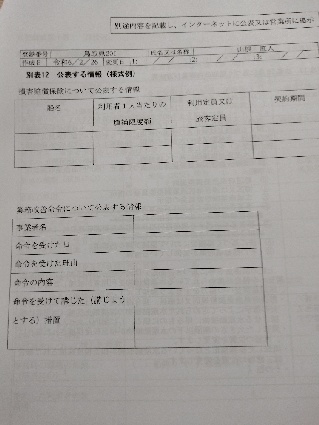 別途内容を記載し、インターネットに公表又は営業所に掲示
登録番号 氏名又は名称
作成日 令和6/2/26 変更日 1) / / 2) / / 3) / /
別表12 公表する情報（様式例）
損害賠償保険について公表する情報
船名 利用者1人当たりの 利用定員又は 契約期間
填補限度額 旅客定員
業務改善命令について公表する情報
事業者名
命令を受けた日
命令を受けた理由
命令の内容
命令を受けて講じた（講じよう
とする）措置